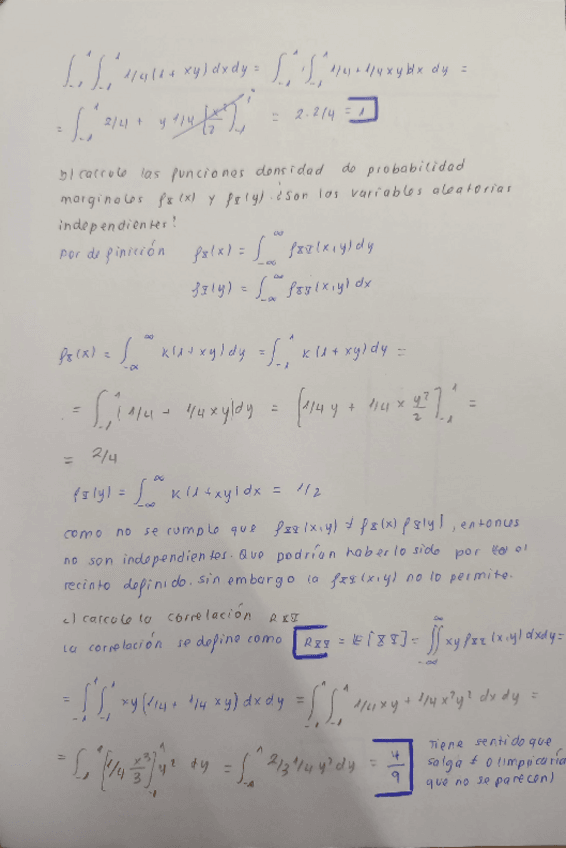 ∫₋₁¹ ∫₋₁¹ 1/4(1 + xy) dx dy = ∫₋₁¹ ∫₋₁¹ 1/4 + 1/4 xy dx dy =
= ∫₋₁¹ 2/4 + y 1/4 [x²/2]₋₁¹ = 2·2/4 = 1
b) calcule las funciones densidad de probabilidad
marginales fX(x) y fY(y). ¿Son las variables aleatorias
independientes?
Por definición fX(x) = ∫₋∞^∞ fXY(x,y) dy
fY(y) = ∫₋∞^∞ fXY(x,y) dx
fX(x) = ∫₋∞^∞ K(1 + xy) dy = ∫₋₁¹ K(1 + xy) dy =
= ∫₋₁¹ (1/4 + 1/4 xy) dy = [1/4 y + 1/4 x y²/2]₋₁¹ =
= 2/4
fY(y) = ∫₋∞^∞ K(1 + xy) dx = 1/2
como no se cumple que fXY(x,y) ≠ fX(x) fY(y), entonces
no son independientes. Que podrían haberlo sido por el
recinto definido. Sin embargo la fXY(x,y) no lo permite.
c) calcule la correlación RXY
La correlación se define como RXY = E[XY] = ∬₋∞^∞ xy fXY(x,y) dxdy =
= ∫₋₁¹ ∫₋₁¹ xy (1/4 + 1/4 xy) dx dy = ∫₋₁¹ ∫₋₁¹ 1/4 xy + 1/4 x²y² dx dy =
= ∫₋₁¹ [1/4 x³/3]₋₁¹ y² dy = ∫₋₁¹ 2/3 1/4 y² dy = 4/9
Tiene sentido que
salga ≠ 0 (implicaría
que no se parecen)